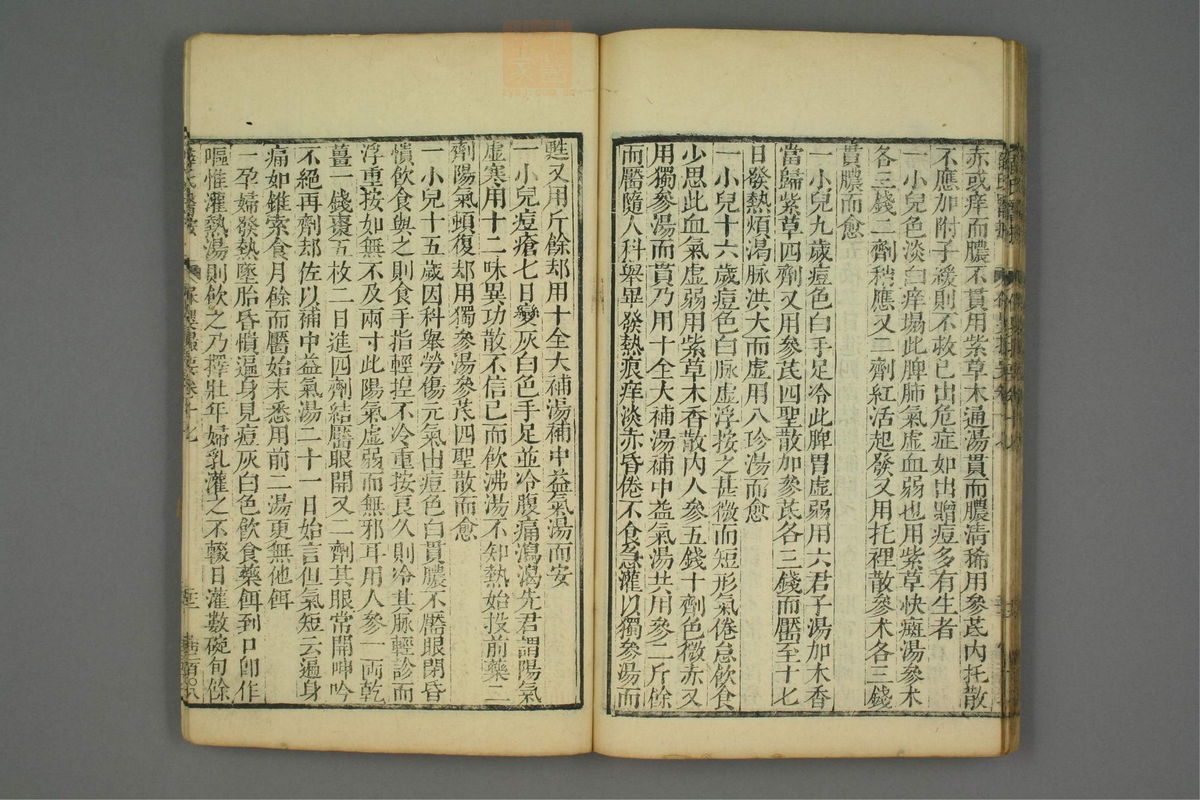 赤或痒而膿不貫用紫草木通湯貫而膿清稀用參芪內托散
不應加附子緩則不救已出危症如出贈痘多有生者
一小兒色淡白痒塌此脾肺氣虛血弱也用紫草快癍湯參朮
各三錢一劑稍應又二劑紅活起發又用托裡散參朮各三錢
貫膿而愈
一小兒九歲痘色白手足冷此脾胃虛弱用六君子湯加木香
當歸紫草四劑又用參芪四聖散加參芪各三錢而靨至十七
日發熱煩渴脉洪大而虛用八珍湯而愈
一小兒十六歲痘色白脉虛浮按之甚微而短形氣倦怠飲食
少思此血氣虛弱用紫草木香散內人參五錢十劑色微赤又
用獨參湯而貫乃用十全大補湯補中益氣湯共用參二斤餘
而靨隨人科舉畢發熱痕痒淡赤昏倦不食急灌以獨參湯而
甦又用斤餘却用十全大補湯補中益氣湯而安
一小兒痘瘡七日變灰白色手足並冷腹痛瀉渴先君謂陽氣
虛寒用十二味異功散不信已而飲沸湯不知熱始投前藥二
劑陽氣頓復却用獨參湯參芪四聖散而愈
一小兒十五歲因科舉勞傷元氣出痘色白貫膿不靨眼閉昏
憒飲食與之則食手指輕捏不冷重按良久則冷其脉輕診而
浮重按如無不及兩寸此陽氣虛弱而無邪耳用人參一兩乾
薑一錢棗五枚二日進四劑結靨眼開又二劑其眼常開呻吟
不絕再劑却佐以補中益氣湯二十一日始言但氣短云遍身
痛如錐索食月餘而靨始末悉用前二湯更無他餌
一孕婦發熱墜胎昏憒遍身見痘灰白色飲食藥餌到口卽作
嘔惟灌熱湯則飲之乃擇壯年婦乳灌之不輟日灌數碗旬餘